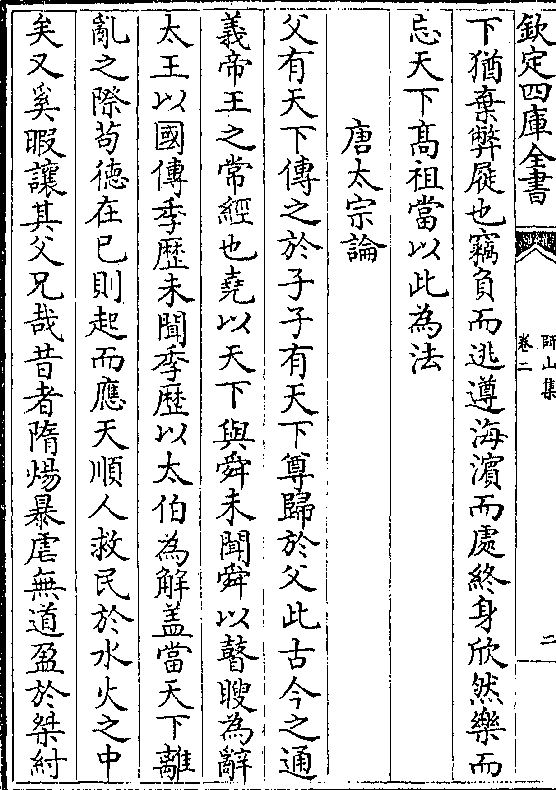 欽定四庫全書
師山集
卷二
二
下猶棄弊屣也竊負而逃遵海濱而處終身欣然樂而
忘天下高祖當以此為法
唐太宗論
父有天下傳之於子子有天下尊歸於父此古今之通
義帝王之常經也堯以天下與舜未聞舜以瞽瞍為辭
太王以國傳季歷未聞季歷以太伯為解蓋當天下離
亂之際苟德在已則起而應天順人救民於水火之中
矣又奚暇讓其父兄哉昔者隋煬暴虐無道盈於桀紂